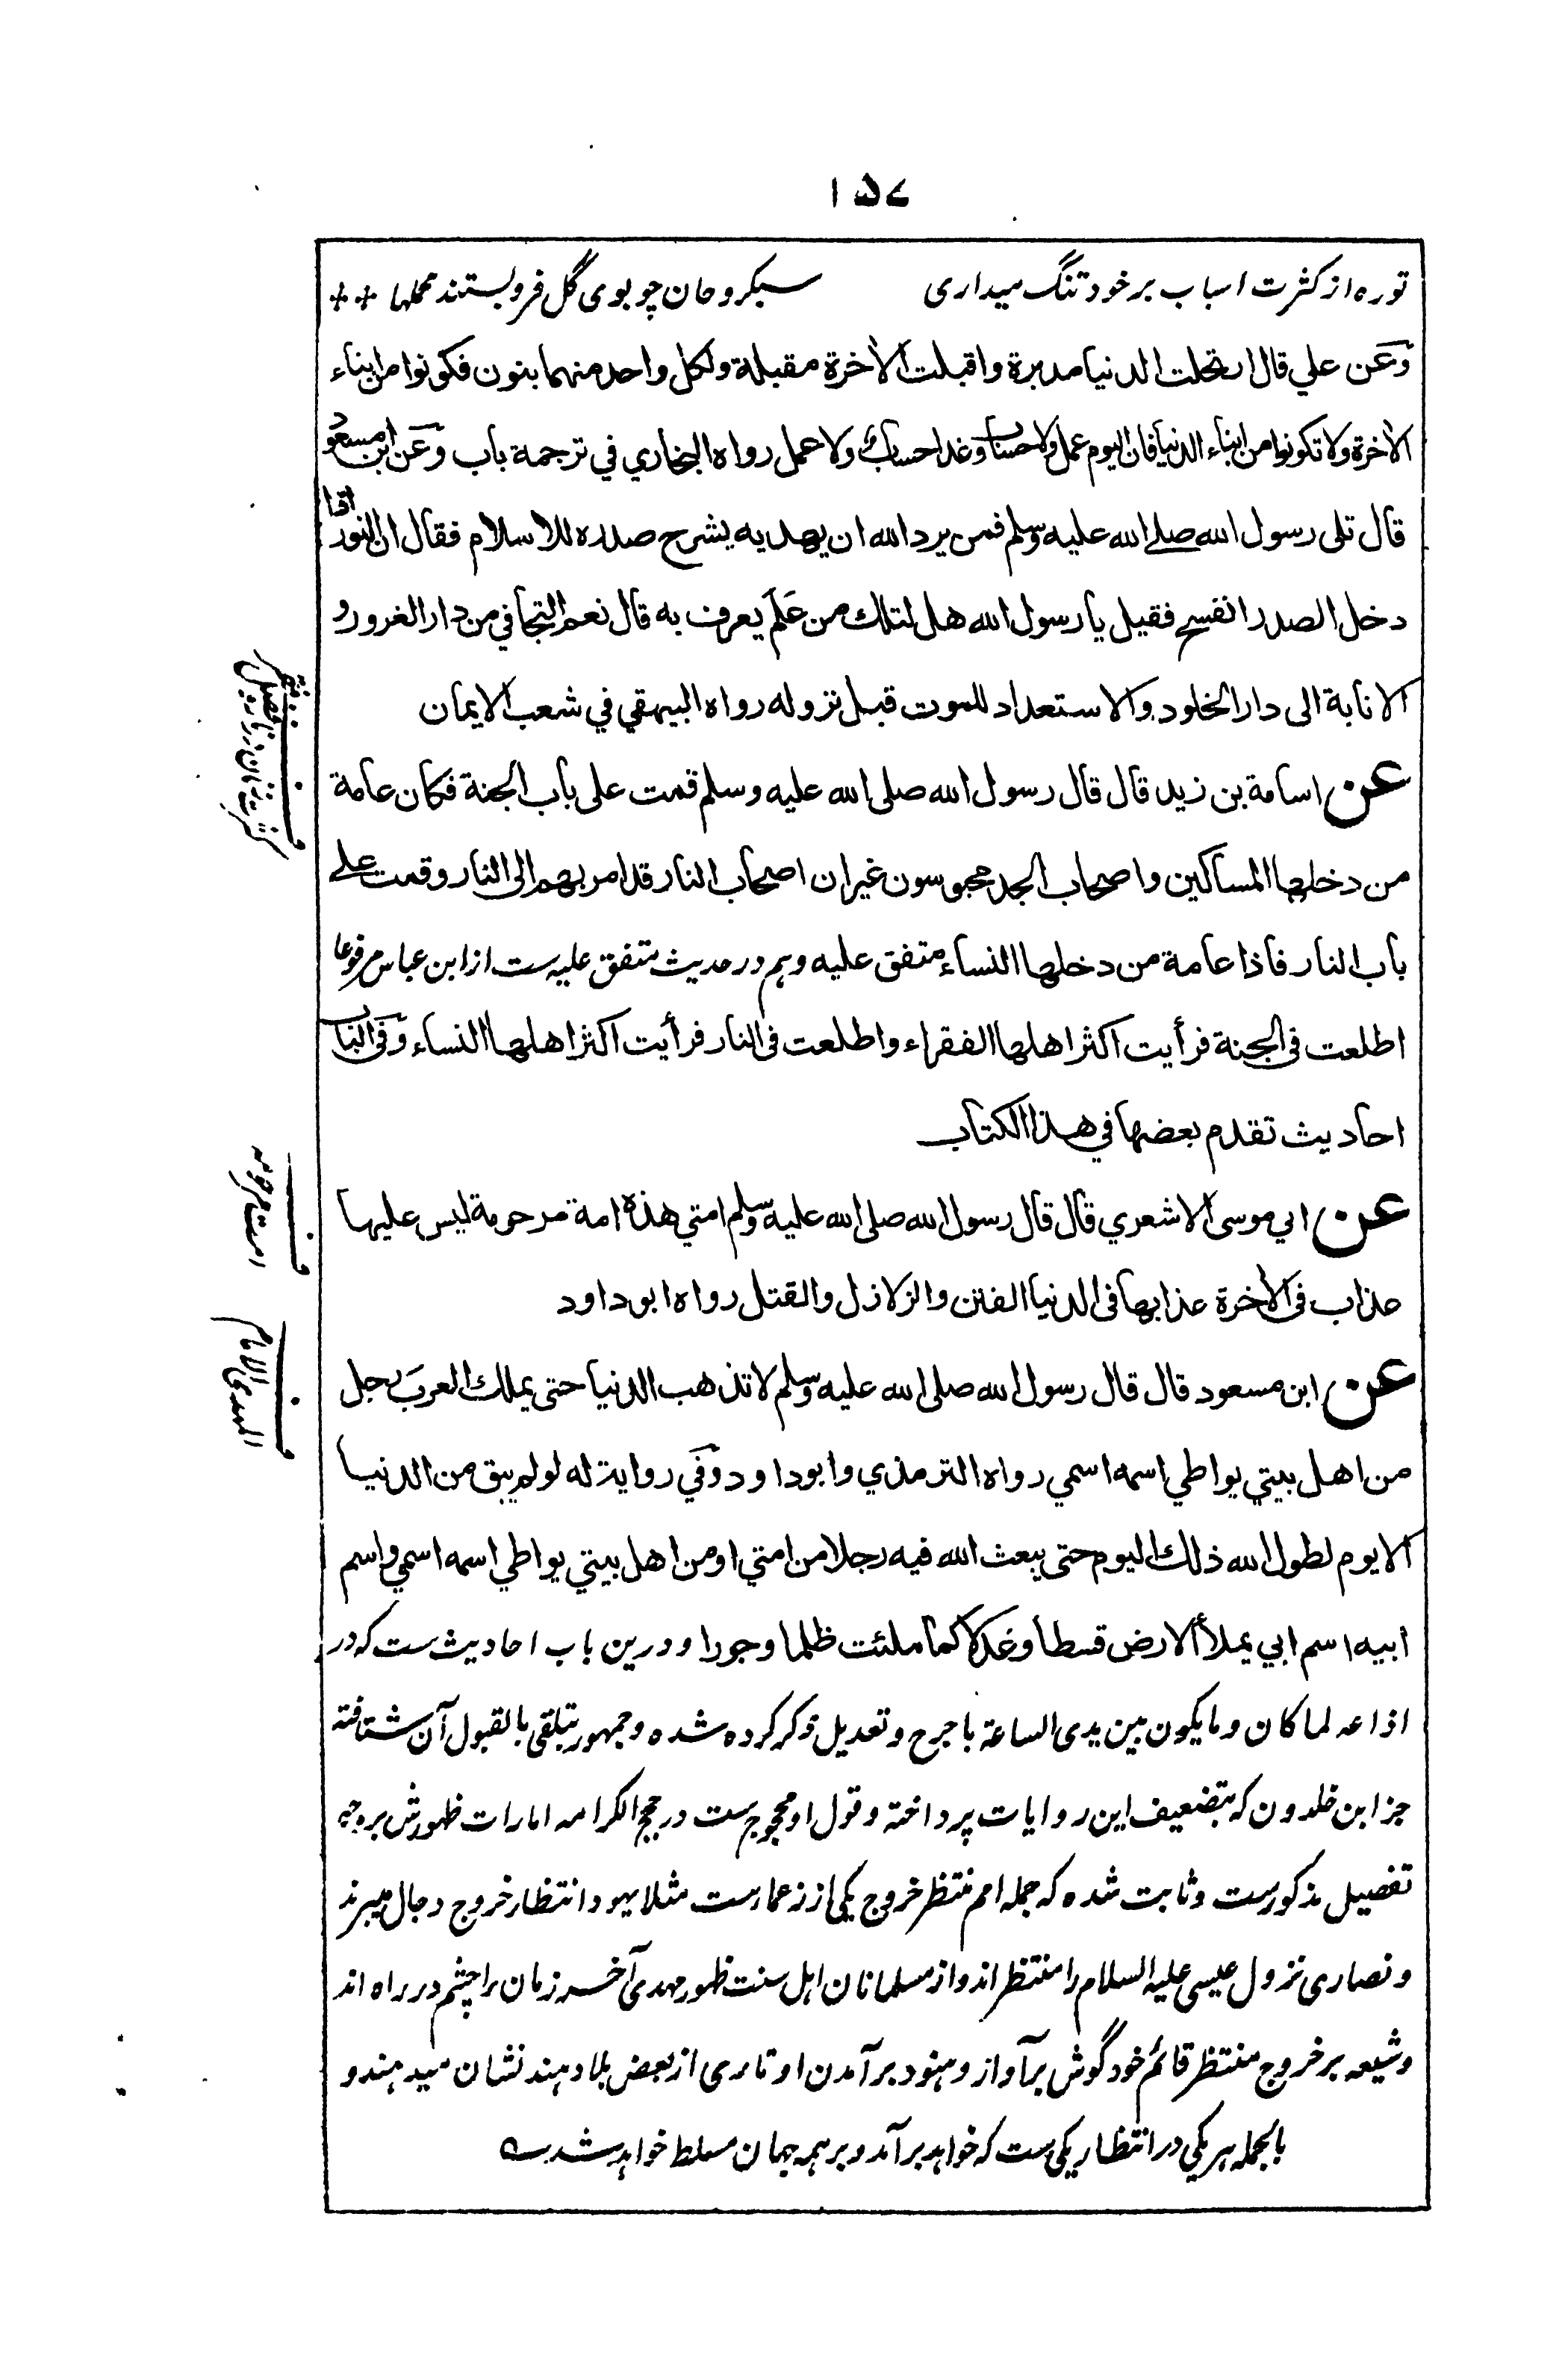 ۱۵۷
تو ره از کثرت اسباب بر خود تنگ میداری سبکروحان چو بوی گل فروبستند محملها
وعن علي قال ارتحلت الدنيا مدبرة واقبلت الاخرة مقبلة ولكل واحد منهما بنون فكونوا من ابناء
الاخرة ولا تكونوا من ابناء الدنيا فان اليوم عمل ولا حساب وغدا حساب ولا عمل رواه البخاري في ترجمة باب وعن ابن مسعود
قال تلى رسول الله صلى الله عليه وسلم فمن يرد الله ان يهديه يشرح صدره للاسلام فقال ان النور اذا
دخل الصدر انفسح فقيل يا رسول الله هل لتلك من عَلَم يعرف به قال نعم التجافي من دار الغرور و
الانابة الى دار الخلود والاستعداد للموت قبل نزوله رواه البيهقي في شعب الايمان
عن اسامة بن زيد قال قال رسول الله صلى الله عليه وسلم قمت على باب الجنة فكان عامة
من دخلها المساكين واصحاب الجد محبوسون غير ان اصحاب النار قد امر بهم الى النار وقمت على
باب النار فاذا عامة من دخلها النساء متفق عليه وہم در حدیث متفق علیہ ست از ابن عباس مرفوعا
اطلعت في الجنة فرأيت اكثر اهلها الفقراء واطلعت في النار فرأيت اكثر اهلها النساء وفي الباب
احاديث تقدم بعضها في هذا الكتاب
عن ابي موسى الاشعري قال قال رسول الله صلى الله عليه وسلم امتي هذه امة مرحومة ليس عليها
عذاب في الأخرة عذابها في الدنيا الفتن والزلازل والقتل رواه ابو داود
عن ابن مسعود قال قال رسول الله صلى الله عليه وسلم لا تذهب الدنيا حتى يملك العرب رجل
من اهل بيتي يواطي اسمه اسمي رواه الترمذي وابو داود وفي رواية له لو لم يبق من الدنيا
الا يوم لطول الله ذلك اليوم حتى يبعث الله فيه رجلا من امتي او من اهل بيتي يواطي اسمه اسمي واسم
ابيه اسم ابي يملأ الارض قسطا وعدلا كما ملئت ظلما وجورا ودرین باب احادیث ست که در
اذاعه لما کان وما یکون بین یدی الساعة با جرح و تعدیل ذکر کرده شده و جمهور بتلقی بالقبول آن شتافته
جز ابن خلدون که بتضعیف این روایات پرداخته و قول او محجوج ست در حجج الکرامه امارات ظهورش بر وجه
تفصیل مذکورست و ثابت شده که جمله امم منتظر خروج یکی از زعمارست مثلا یهود انتظار خروج دجال میبرند
و نصاری نزول عیسی علیه السلام را منتظر اند و از مسلمانان اہل سنت ظهور مهدی آخر زمان را چشم در راه اند
و شیعه بر خروج منتظر قائم خود گوش بر آواز و هنود برآمدن اوتاری از بعض بلاد هند نشان میدهند و
بالجمله هر یکی در انتظار یکی ست که خواهد برآمد و بر همه جهان مسلط خواهد شد
امت مرحومه
المهدی الامام